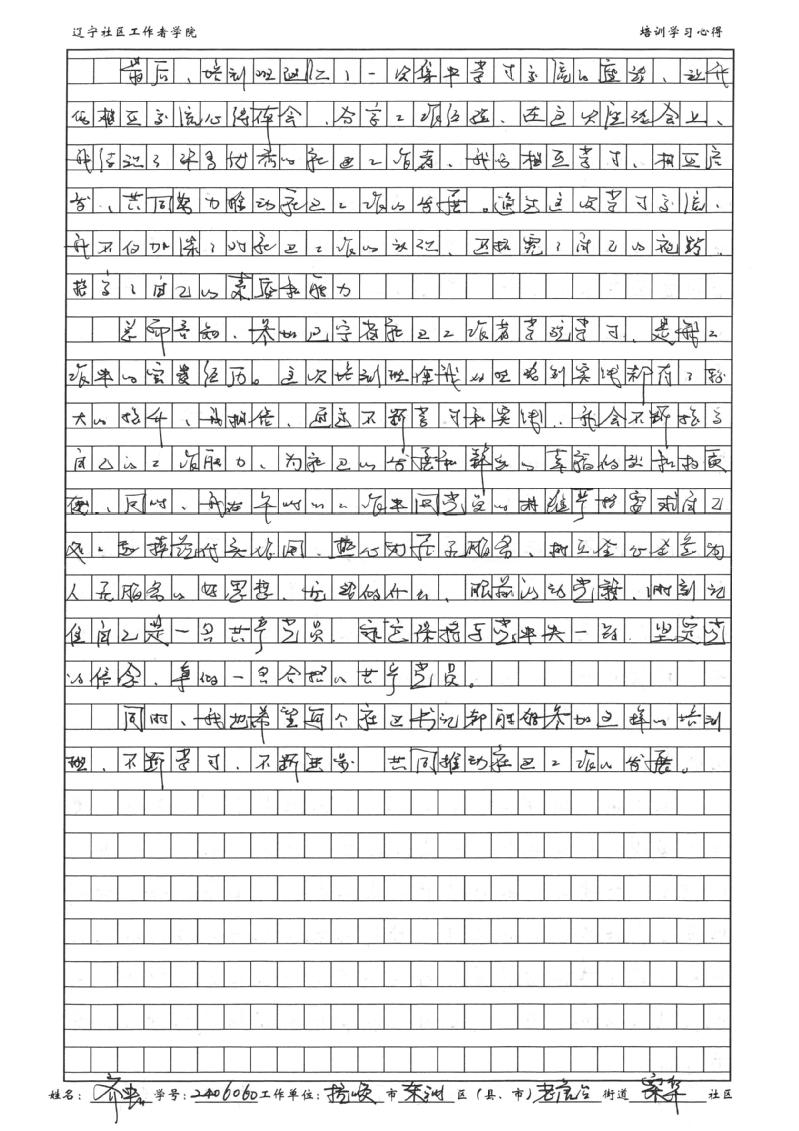 辽宁社区工作者学院 培训学习心得
最后、培训班还进行了一次集中学习交流的座谈、让我
们相互交流心得体会、分享工作经验、在这次座谈会上、
我结识了许多优秀的社区工作者、我们相互学习、相互启
发、共同努力推动社区工作的发展。通过这次学习交流、
我不仅加深了对社区工作的认识、还拓宽了自己的视野、
提高了自己的素质和能力
总而言知、参加辽宁省社区工作者学院学习、是我工
作中的宝贵经历。这次培训班使我从理论到实践都有了较
大的提升、我相信、通过不断学习和实践、我会不断提高
自己的工作能力、为社区的发展和群众的幸福做出
同时、我在平时的工作中
为社区服务、树立全心全意为
人民服务的好思想、时刻记
住自己是一名共产党员、永远保持与党中央一致、坚定党
的信念、争做一名合格的共产党员。
同时、我也希望每个社区书记都能够参加这样的培训
班、不断学习、不断进步 共同推动社区工作的发展。
姓名： 齐 学号：2406060 工作单位：抚顺 市 东洲 区（县、市） 老虎台 街道 社区